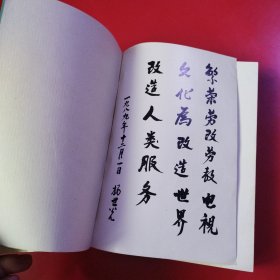 繁荣劳改劳教电视
文化为改造世界
改造人类服务
一九八九年十二月一日